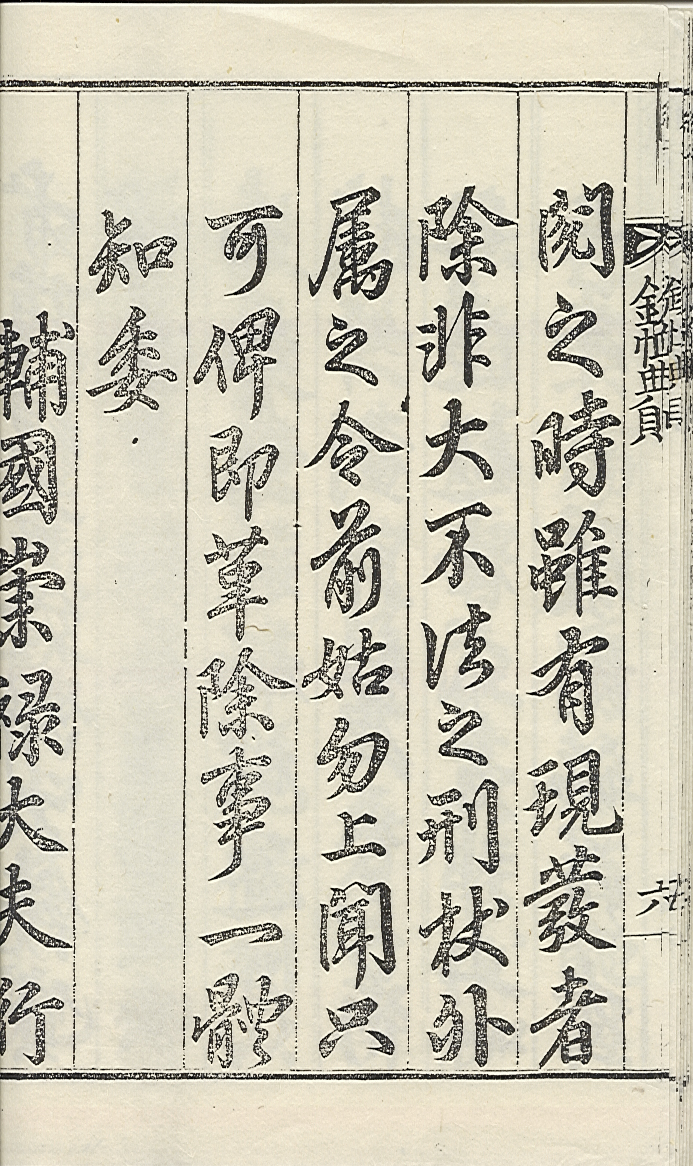 閱之時雖有現發者
除非大不法之刑杖外
属之令前姑勿上聞只
可俾即革除事一體
知委
輔國崇禄大夫行